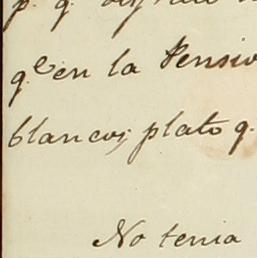 p. q.
q.e en la Pensio
blancos; plato q.
No tenia